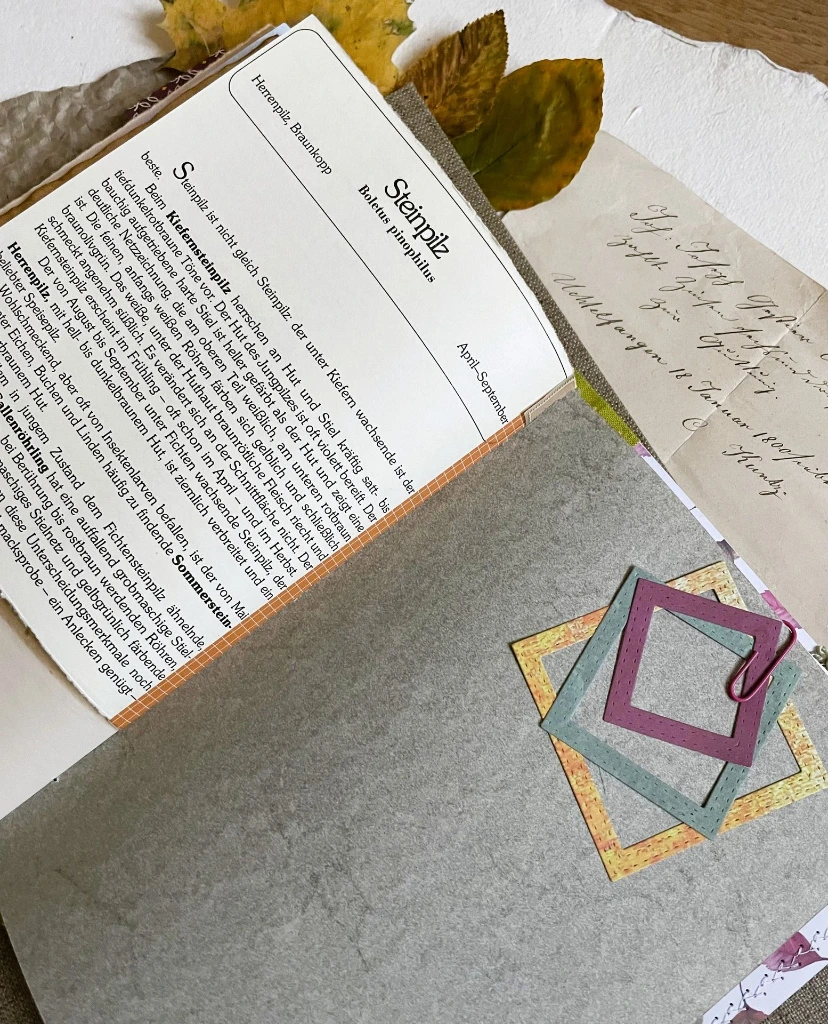 Herrenpilz, Braunkopp
Steinpilz
Boletus pinophilus
April–September
Steinpilz ist nicht gleich Steinpilz, der unter Kiefern wachsende ist der
beste.
Beim Kiefernsteinpilz herrschen an Hut und Stiel kräftig saft- bis
tiefdunkelrotbraune Töne vor. Der Hut des Jungpilzes ist oft violett bereift. Der
bauchig aufgetriebene harte Stiel ist heller gefärbt als der Hut und zeigt eine
deutliche Netzzeichnung, die am oberen Teil weißlich, am unteren rotbraun
ist. Die feinen, anfangs weißen Röhren färben sich gelblich und schließlich
braunolivgrün. Das weiße, unter der Huthaut braunrötliche Fleisch riecht und
schmeckt angenehm süßlich. Es verändert sich an der Schnittfläche nicht. Der
Kiefernsteinpilz erscheint im Frühling – oft schon im April – und im Herbst.
Der von August bis September unter Fichten wachsende Steinpilz, der
Herrenpilz, mit hell- bis dunkelbraunem Hut, ist ziemlich verbreitet und ein
beliebter Speisepilz.
Wohlschmeckend, aber oft von Insektenlarven befallen, ist der von Mai
Eichen, Buchen und Linden häufig zu findende Sommerstein-
braunem Hut.
in jungem Zustand dem Fichtensteinpilz ähnelnde,
hat eine auffallend grobmaschige Stiel-
bei Berührung bis rostbraun werdenden Röhren,
Stielnetz und gelbgrünlich färbende
diese Unterscheidungsmerkmale noch
– ein Anlecken genügt –
18 Januar